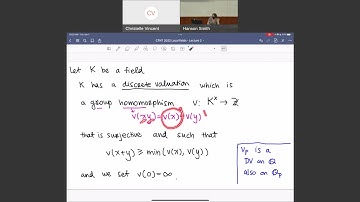 CV
Christelle Vincent
Hanson Smith
Let K be a field
K has a discrete valuation which is
a group homomorphism v: K^× → ℤ
v(xy) = v(x) + v(y)
that is surjective and such that
v(x+y) ≥ min(v(x), v(y))
and we set v(0) = ∞.
v_p is a
DV on ℚ
also on ℚ_p